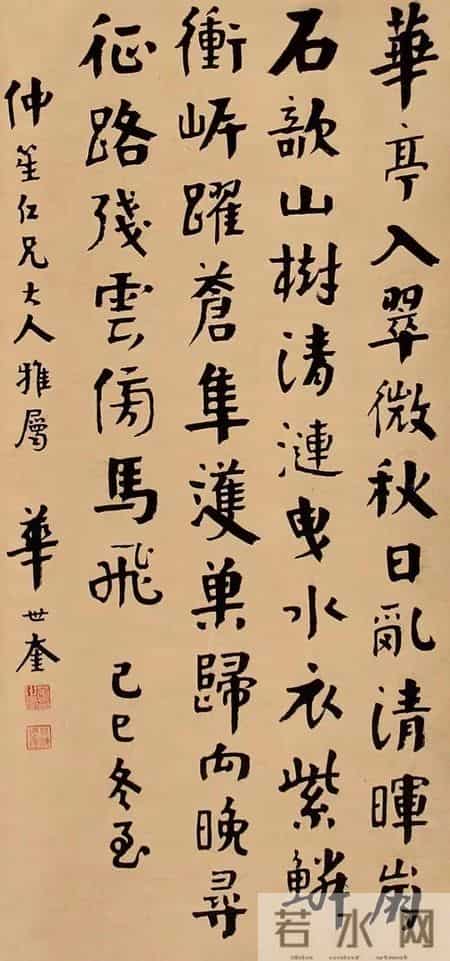 華亭入翠微秋日亂清暉崩
石欹山樹清漣曳水衣紫鱗
衝岸躍蒼隼護巢歸向晚尋
征路殘雲傍馬飛 己巳冬至
仲笙仁兄大人雅屬 華世奎
若水网